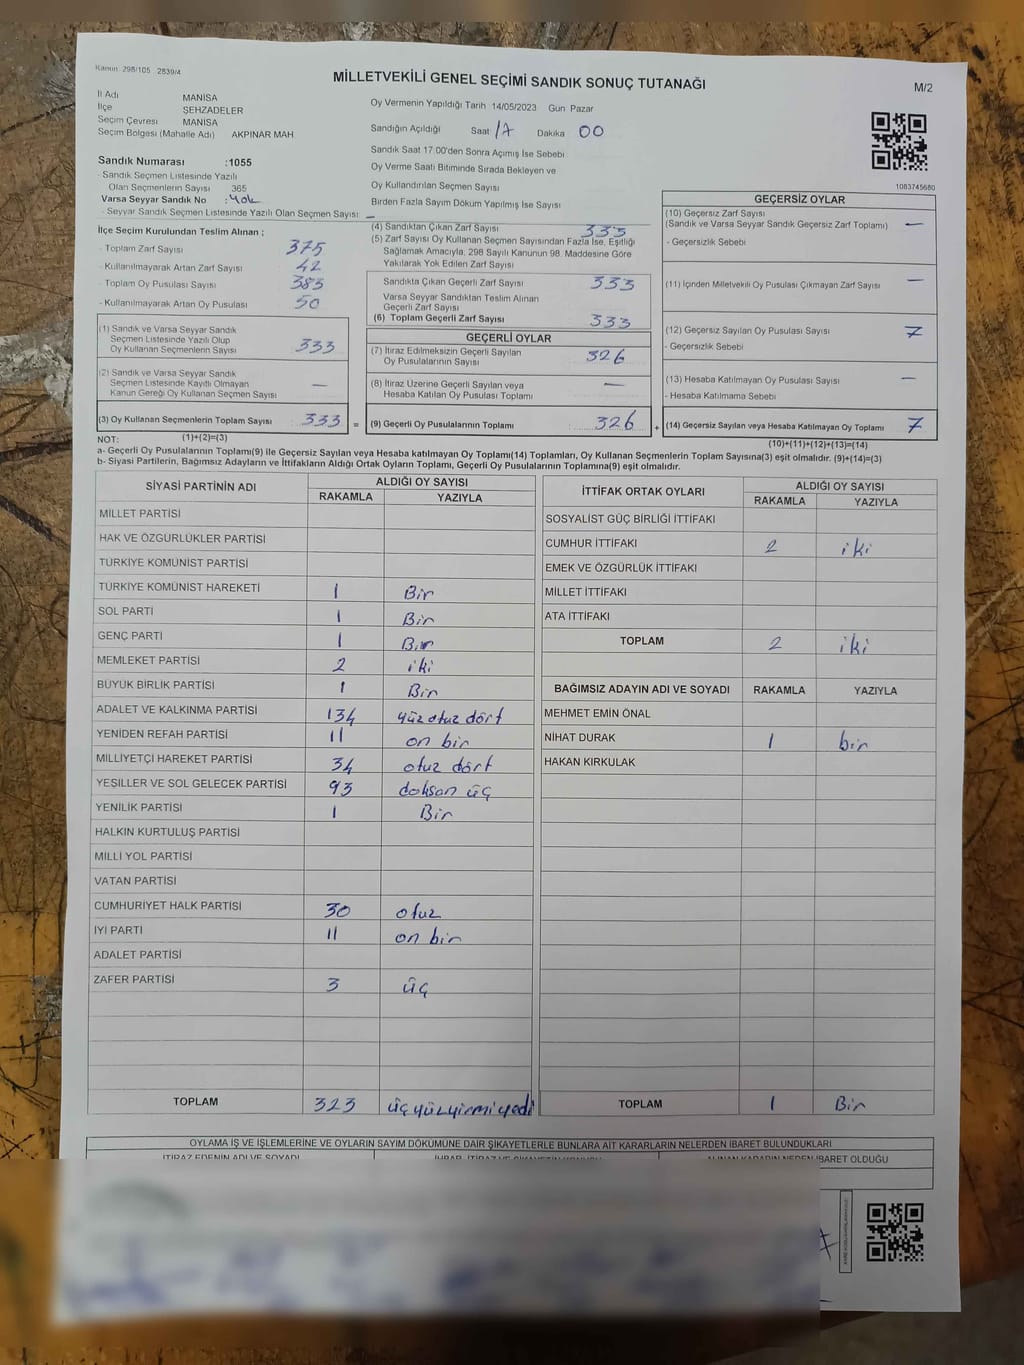 Kanun 298/105 2839/4
MİLLETVEKİLİ GENEL SEÇİMİ SANDIK SONUÇ TUTANAĞI
M/2
İl Adı MANİSA
İlçe ŞEHZADELER
Seçim Çevresi MANİSA
Seçim Bölgesi (Mahalle Adı) AKPINAR MAH.
Sandık Numarası :1055
- Sandık Seçmen Listesinde Yazılı
Olan Seçmenlerin Sayısı 365
Varsa Seyyar Sandık No : Yok
- Seyyar Sandık Seçmen Listesinde Yazılı Olan Seçmen Sayısı: —
Oy Vermenin Yapıldığı Tarih 14/05/2023 Gün Pazar
Sandığın Açıldığı Saat 17 Dakika 00
Sandık Saat 17:00'den Sonra Açımış İse Sebebi
Oy Verme Saati Bitiminde Sırada Bekleyen ve
Oy Kullandırılan Seçmen Sayısı
Birden Fazla Sayım Döküm Yapılmış İse Sayısı
1083745680
İlçe Seçim Kurulundan Teslim Alınan ;
- Toplam Zarf Sayısı 375
- Kullanılmayarak Artan Zarf Sayısı 42
- Toplam Oy Pusulası Sayısı 383
- Kullanılmayarak Artan Oy Pusulası 50
(1) Sandık ve Varsa Seyyar Sandık
Seçmen Listesinde Yazılı Olup
Oy Kullanan Seçmenlerin Sayısı 333
(2) Sandık ve Varsa Seyyar Sandık
Seçmen Listesinde Kayıtlı Olmayan
Kanun Gereği Oy Kullanan Seçmen Sayısı —
(3) Oy Kullanan Seçmenlerin Toplam Sayısı 333 =
(1)+(2)=(3)
(4) Sandıktan Çıkan Zarf Sayısı 333
(5) Zarf Sayısı Oy Kullanan Seçmen Sayısından Fazla İse, Eşitliği
Sağlamak Amacıyla, 298 Sayılı Kanunun 98. Maddesine Göre
Yakılarak Yok Edilen Zarf Sayısı
Sandıkta Çıkan Geçerli Zarf Sayısı 333
Varsa Seyyar Sandıktan Teslim Alınan
Geçerli Zarf Sayısı
(6) Toplam Geçerli Zarf Sayısı 333
GEÇERLİ OYLAR
(7) İtiraz Edilmeksizin Geçerli Sayılan
Oy Pusulalarının Sayısı 326
(8) İtiraz Üzerine Geçerli Sayılan veya
Hesaba Katılan Oy Pusulası Toplamı —
(9) Geçerli Oy Pusulalarının Toplamı 326 +
GEÇERSİZ OYLAR
(10) Geçersiz Zarf Sayısı
(Sandık ve Varsa Seyyar Sandık Geçersiz Zarf Toplamı) —
- Geçersizlik Sebebi
(11) İçinden Milletvekili Oy Pusulası Çıkmayan Zarf Sayısı —
(12) Geçersiz Sayılan Oy Pusulası Sayısı 7
- Geçersizlik Sebebi
(13) Hesaba Katılmayan Oy Pusulası Sayısı —
- Hesaba Katılmama Sebebi
(14) Geçersiz Sayılan veya Hesaba Katılmayan Oy Toplamı 7
(10)+(11)+(12)+(13)=(14)
NOT:
a- Geçerli Oy Pusulalarının Toplamı(9) ile Geçersiz Sayılan veya Hesaba katılmayan Oy Toplamı(14) Toplamları, Oy Kullanan Seçmenlerin Toplam Sayısına(3) eşit olmalıdır. (9)+(14)=(3)
b- Siyasi Partilerin, Bağımsız Adayların ve İttifakların Aldığı Ortak Oyların Toplamı, Geçerli Oy Pusulalarının Toplamına(9) eşit olmalıdır.
SİYASİ PARTİNİN ADI ALDIĞI OY SAYISI
RAKAMLA YAZIYLA
MİLLET PARTİSİ
HAK VE ÖZGÜRLÜKLER PARTİSİ
TÜRKİYE KOMÜNİST PARTİSİ
TÜRKİYE KOMÜNİST HAREKETİ 1 Bir
SOL PARTİ 1 Bir
GENÇ PARTİ 1 Bir
MEMLEKET PARTİSİ 2 iki
BÜYÜK BİRLİK PARTİSİ 1 Bir
ADALET VE KALKINMA PARTİSİ 134 yüz otuz dört
YENİDEN REFAH PARTİSİ 11 on bir
MİLLİYETÇİ HAREKET PARTİSİ 34 otuz dört
YEŞİLLER VE SOL GELECEK PARTİSİ 93 doksan üç
YENİLİK PARTİSİ 1 Bir
HALKIN KURTULUŞ PARTİSİ
MİLLİ YOL PARTİSİ
VATAN PARTİSİ
CUMHURİYET HALK PARTİSİ 30 otuz
İYİ PARTİ 11 on bir
ADALET PARTİSİ
ZAFER PARTİSİ 3 üç
TOPLAM 323 üçyüzyirmiyedi
İTTİFAK ORTAK OYLARI ALDIĞI OY SAYISI
RAKAMLA YAZIYLA
SOSYALİST GÜÇ BİRLİĞİ İTTİFAKI
CUMHUR İTTİFAKI 2 iki
EMEK VE ÖZGÜRLÜK İTTİFAKI
MİLLET İTTİFAKI
ATA İTTİFAKI
TOPLAM 2 iki
BAĞIMSIZ ADAYIN ADI VE SOYADI RAKAMLA YAZIYLA
MEHMET EMİN ÖNAL
NİHAT DURAK 1 bir
HAKAN KIRKULAK
TOPLAM 1 Bir
OYLAMA İŞ VE İŞLEMLERİNE VE OYLARIN SAYIM DÖKÜMÜNE DAİR ŞİKAYETLERLE BUNLARA AİT KARARLARIN NELERDEN İBARET BULUNDUKLARI
İTİRAZ EDENİN ADI VE SOYADI
ALINAN KARARIN NEDEN İBARET OLDUĞU